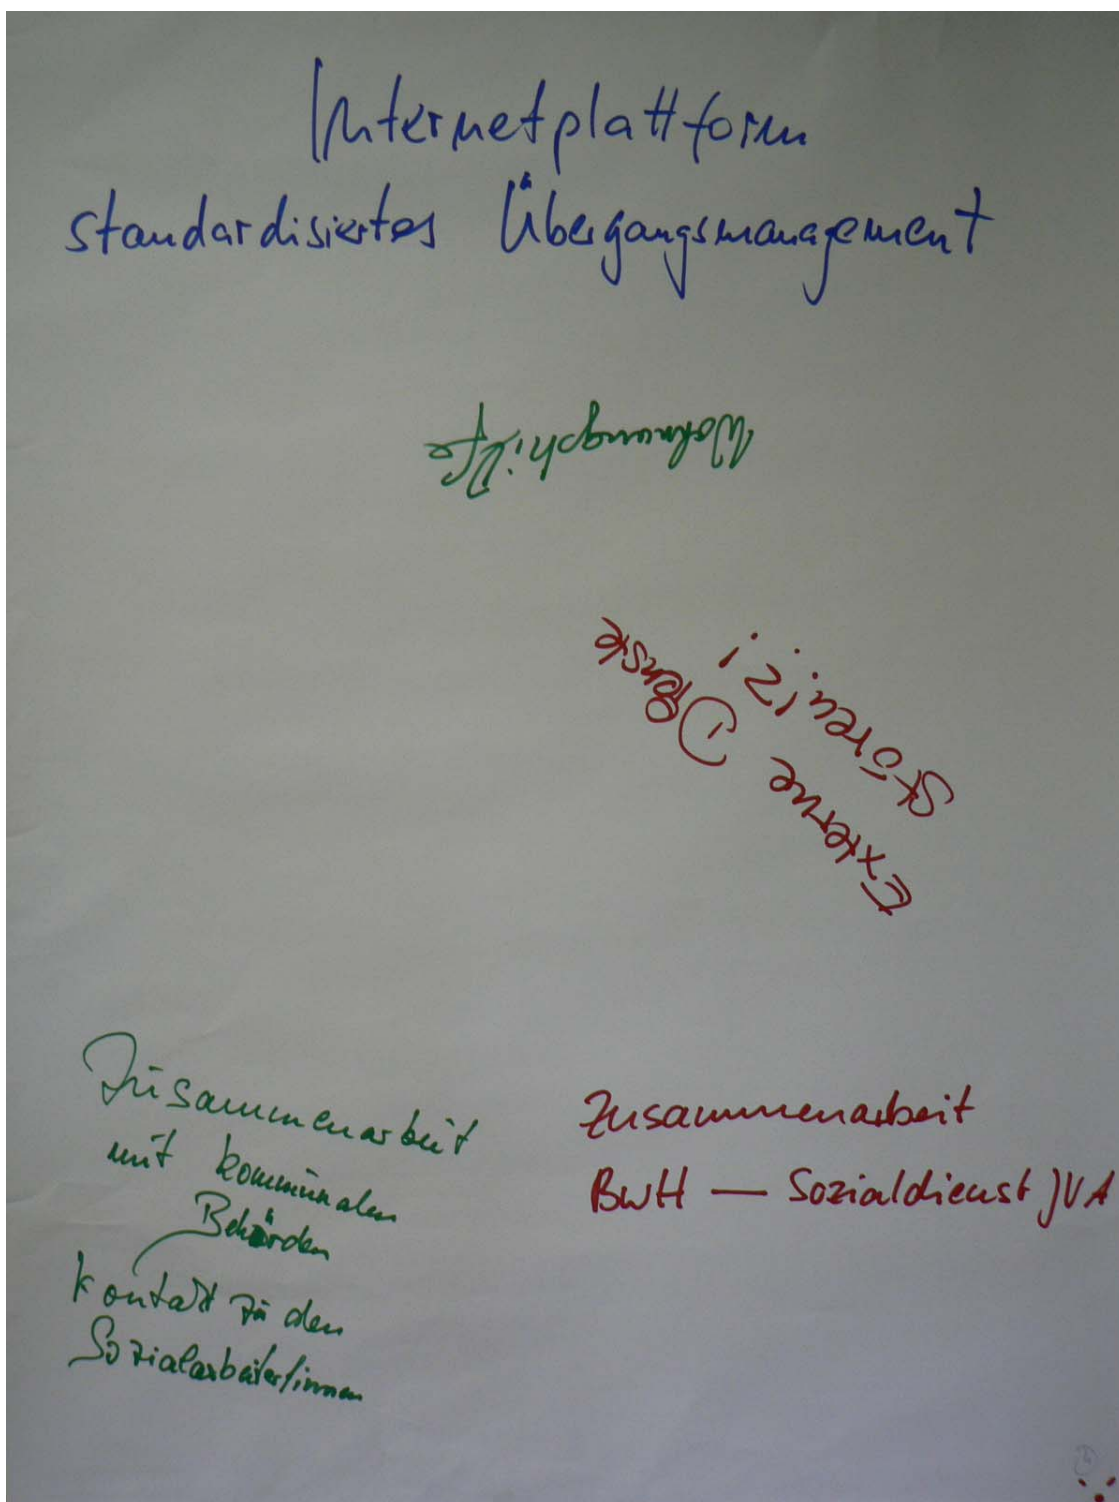 Internetplattform
standardisiertes Übergangsmanagement
Wohnungshilfe
Externe Dienste
stören!?!
Zusammenarbeit
mit kommunalen
Behörden
Kontakt zu den
Sozialarbeiter/innen
Zusammenarbeit
BwH — Sozialdienst JVA